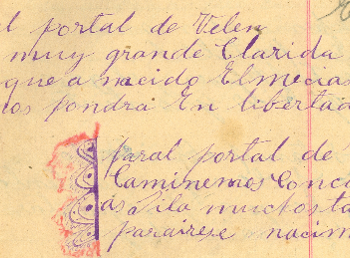 l portal de Velen
muy grande Clarida
que a nacido El mecias
nos pondra En libertad
paral portal de
Caminemos Conc
muchos ta
nacim